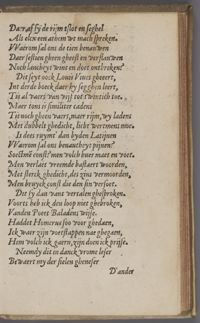 Daer af sy de rijm tslot en seghel
Alt elen een athem we mach spreken.
Waerom sal ons de tien benauwen
Daer sesthien gheen gheest en verflauwen
Noch lancheyt wint en doet ontbreken?
Dit seyt oock Louis Vencs gheeert,
Int derde boeck daer hy segghen leert,
Tis al vaers van vijf tot twintich toe.
Maer tons is similiter cadens
Tis noch gheen vaers, maer rijm, wy ladens
Met dobbelt ghedicht, licht wertmens moe.
Is dees ruymt' dan byden Latijnen
Waerom sal ons benautheyt pijnen?
Soetheyt const men volch huer maet en voet.
Men verlaet vreemde bastaert woorden,
Met sterck ghedicht, des zins vermoorden,
Men bruyck const die den sin versoet.
Dit sy dan vant vertalen ghesproken.
Voorts heb ick den loop niet ghebroken,
Vanden Poeet Baladens wijse.
Haddet Homerus soo voor ghedaen,
Ick waer zijn voetstappen nae ghegaen,
Hem volch ick gaern, zijn doen ick prijse.
Neemdy dit in danck vrome leser
Bewaert my der stelen gheneser
D'ander